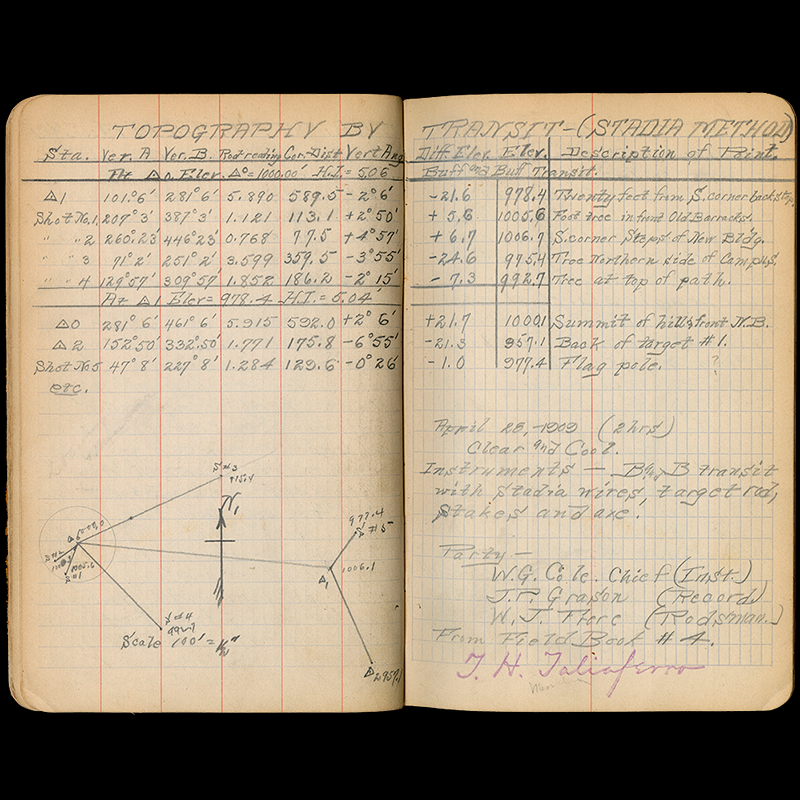 TOPOGRAPHY BY TRANSIT-(STADIA METHOD)
Sta. Ver. A Ver. B. Rod reading Cor. Dist Vert Ang Diff. Elev. Elev. Description of Point.
At △0 Elev. △°=1000.00' H.I.= 5.06 Buff and Buff Transit.
△1 101°6' 281°6' 5.890 589.5 -2°6' -21.6 978.4 Twenty feet from S. corner back step.
Shot No.1 207°3' 387°3' 1.121 113.1 +2°50' +5.6 1005.6 Foot tree in front Old Barracks.
" " 2 260°23' 446°23' 0.768 77.5 +4°57' +6.7 1006.7 S. corner Steps of New Bldg.
" " 3 71°2' 251°2' 3.599 359.5 -3°55' -24.6 975.4 Tree Northern side of Campus.
" " 4 129°57' 309°57' 1.852 186.2 -2°15' -7.3 992.7 Tree at top of path.
At △1 Elev= 978.4 H.I.= 5.04'
△0 281°6' 461°6' 5.915 592.0 +2°6' +21.7 1000.1 Summit of hill front N.B.
△2 152°50' 332°50' 1.771 175.8 -6°55' -21.3 957.1 Back of target #1.
Shot No5 47°8' 227°8' 1.284 129.6 -0°26' -1.0 977.4 Flag pole. ?
etc.
April 28, -1909 (2hrs)
Clear and Cool.
Instruments — B and B transit
with stadia wires, target rod,
stakes and axe.
Party —
W.G. Cole. Chief (Inst.)
J.P. Grason (Record)
W. J. (Rodsman.)
From Field Book #4.
T. H. Taliaferro
S#3
975.4
N
△0
S#1
1005.6
977.4
S#5
△1
1006.1
S#4
992.7
△2 957.1
Scale 100' =